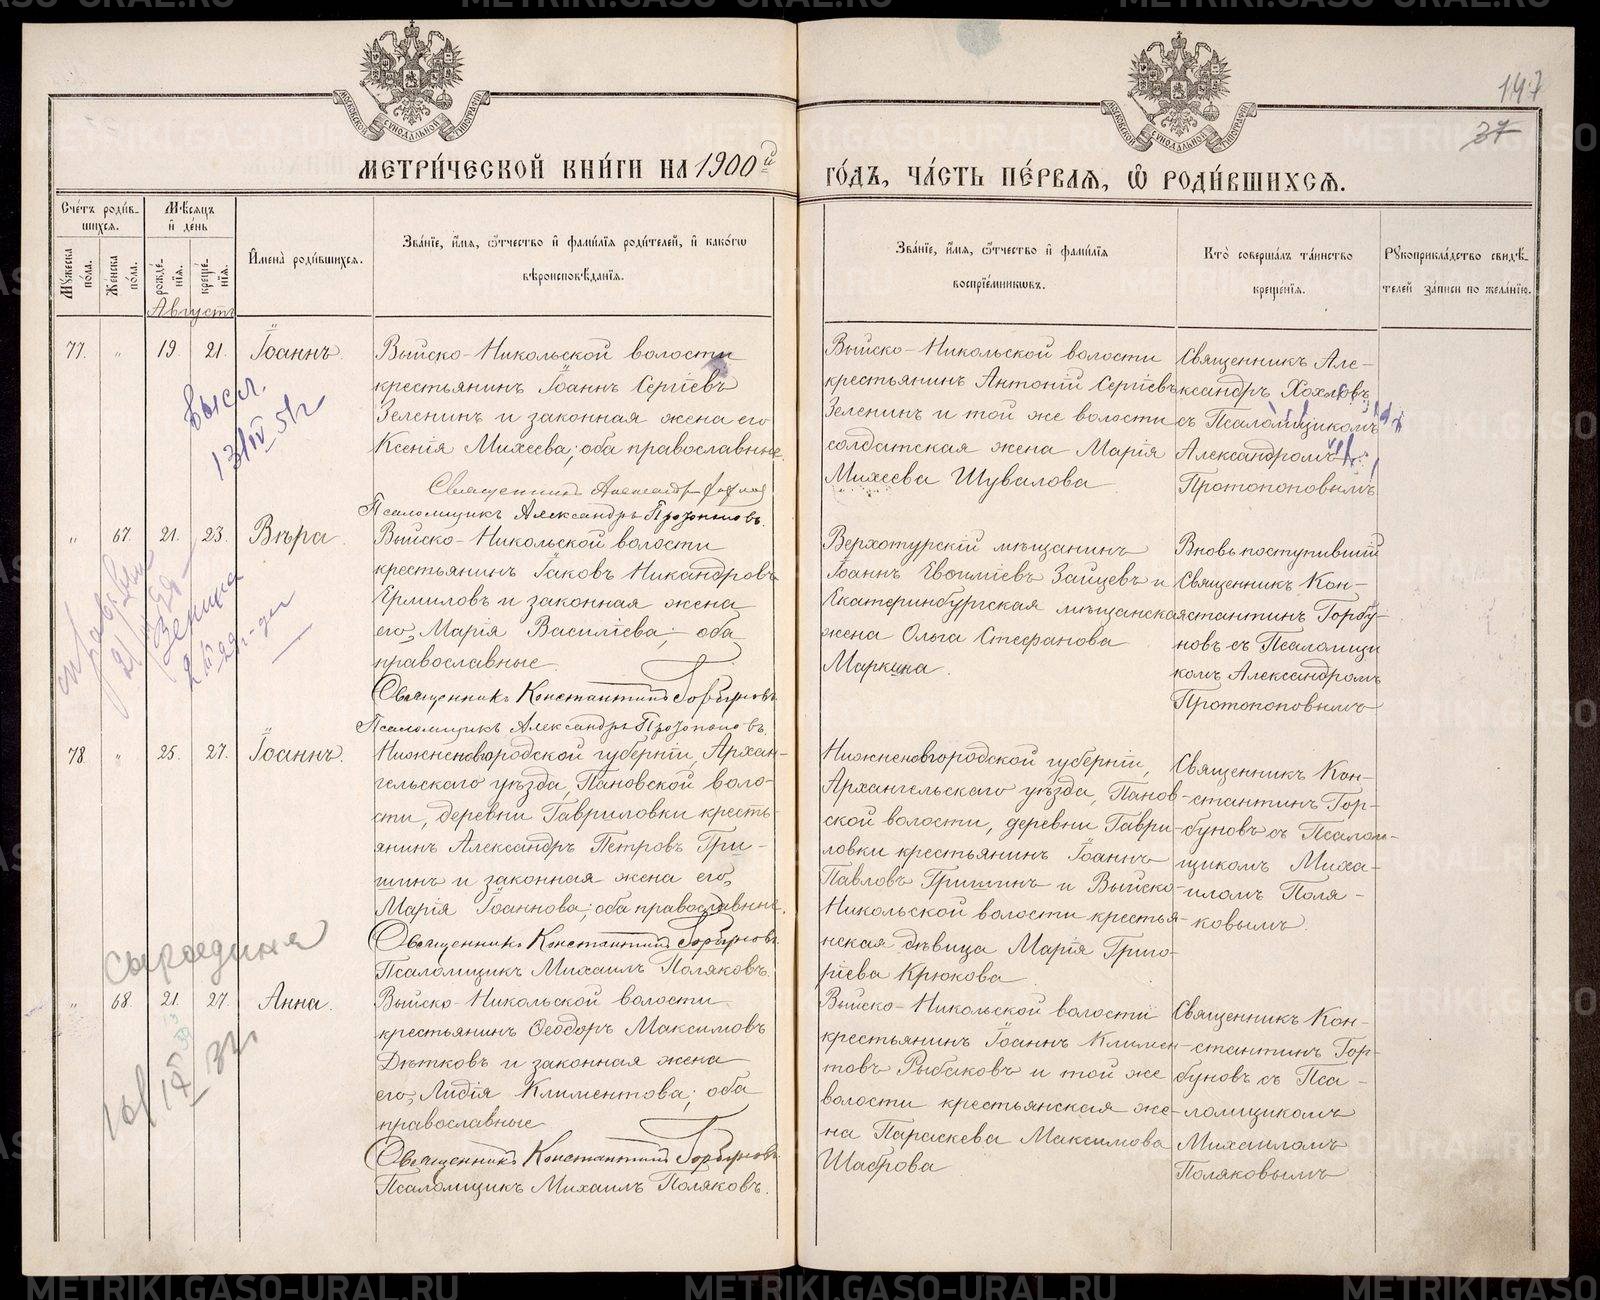 147
37
МОСКОВСКОЙ СѴНОДАЛЬНОЙ ТИПОГРАФІИ
МОСКОВСКОЙ СѴНОДАЛЬНОЙ ТИПОГРАФІИ
МЕТРИ́ЧЕСКОЙ КНИ́ГИ НА 1900й
ГО́ДЪ, ЧА́СТЬ ПЕ́РВАЯ, Ѡ РОДИ́ВШИХСЯ.
Сче́тъ роди́в-
шихся.
Му́жеска по́ла.
Же́нска по́ла.
Мѣ́сяцъ и де́нь
рожде́нія.
креще́нія.
Имена̀ роди́вшихся.
Зва́ніе, и́мя, ѻ҆́тчество и фами́лія роди́телей, и како́гѡ
вѣроисповѣ́данія.
Зва́ніе, и́мя, ѻ҆́тчество и фами́лія
воспріе́мникѡвъ.
Кто̀ соверша́лъ та́инство
креще́нія.
Рꙋкоприкла́дство свидѣ́-
телей за́писи по жела́нію.
Августъ
77. " 19. 21. Іоаннъ.
Выйско-Никольской волости
крестьянинъ Іоаннъ Сергіевъ
Зеленинъ и законная жена его
Ксенія Михеева; оба православные.
Священникъ Александръ Хохловъ
Псаломщикъ Александръ Протопоповъ.
Выйско-Никольской волости
крестьянинъ Антоній Сергіевъ
Зеленинъ и той же волости
солдатская жена Марія
Михеева Шувалова
Священникъ Але-
ксандръ Хохловъ
съ Псаломщикомъ
Александромъ
Протопоповымъ
13/IV 51г
" 67. 21. 23. Вѣра.
Выйско-Никольской волости
крестьянинъ Іаковъ Никандровъ
Ермиловъ и законная жена
его, Марія Василіева; оба
православные.
Священникъ Константинъ Горбуновъ
Псаломщикъ Александръ Протопоповъ.
Верхотурскій мѣщанинъ
Іоаннъ Евѳиміевъ Зайцевъ и
Екатеринбургская мѣщанская
жена Ольга Стефанова
Маркина.
Вновь поступившій
Священникъ Кон-
стантинъ Горбу-
новъ съ Псаломщи
комъ Александромъ
Протопоповымъ
78. " 25. 27. Іоаннъ.
Нижненовгородской губерніи, Архан-
гельскаго уѣзда, Пановской воло-
сти, деревни Гавриловки кресть-
янинъ Александръ Петровъ Гри-
шинъ и законная жена его,
Марія Іоаннова; оба православные.
Священникъ Константинъ Горбуновъ
Псаломщикъ Михаилъ Поляковъ.
Нижненовгородской губерніи,
Архангельскаго уѣзда, Панов-
ской волости, деревни Гаври-
ловки крестьянинъ Іоаннъ
Павловъ Гришинъ и Выйско-
Никольской волости крестья-
нская дѣвица Марія Григо-
ріева Крюкова
Священникъ Кон-
стантинъ Гор-
буновъ съ Псалом-
щикомъ Миха-
иломъ Поля-
ковымъ.
" 68. 21. 27. Анна.
Выйско-Никольской волости
крестьянинъ Ѳеодоръ Максимовъ
Дѣтковъ и законная жена
его, Лидія Климентова; оба
православные
Священникъ Константинъ Горбуновъ
Псаломщикъ Михаилъ Поляковъ.
Выйско-Никольской волости
крестьянинъ Іоаннъ Климен-
товъ Рыбаковъ и той же
волости крестьянская же-
на Параскева Максимова
Шаброва
Священникъ Кон-
стантинъ Гор-
буновъ съ Пса-
ломщикомъ
Михаиломъ
Поляковымъ
METRIKI.GASO-URAL.RU